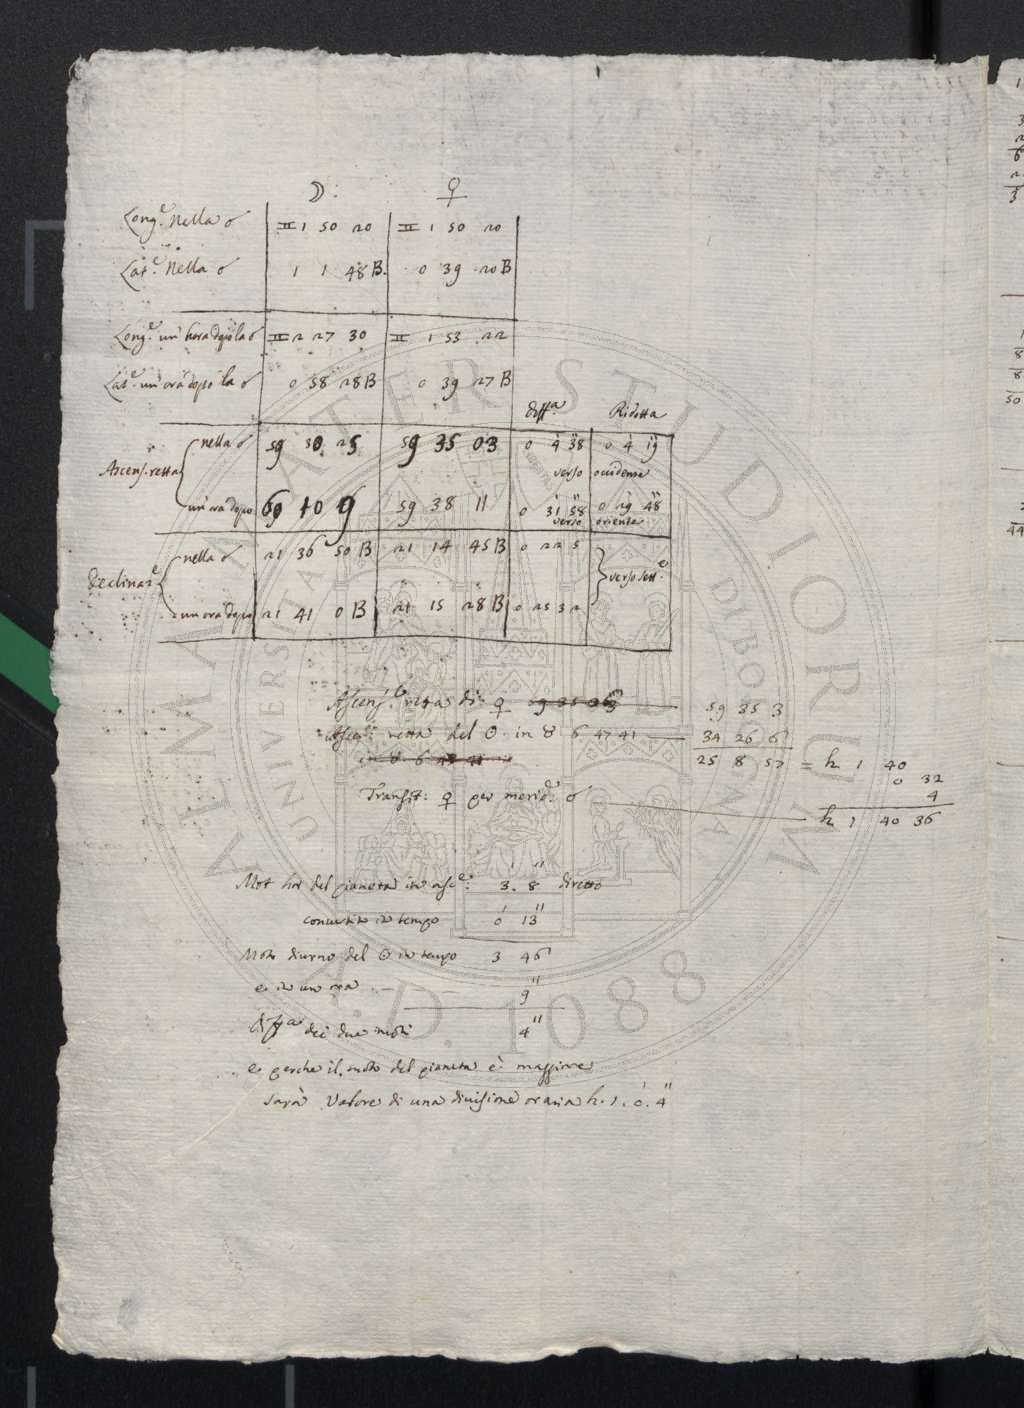 ☽: ♀
Long.e nella ☌ ♊ 1 50 20 ♊ 1 50 20
Lat.e nella ☌ 1 1 48 B. 0 39 20 B
Long.e un' hora dopo la ☌ ♊ 2 27 30 ♊ 1 53 22
Lat.e un' ora dopo la ☌ 0 58 28 B 0 39 27 B
diff.a Ridotta
Ascens. retta nella ☌ 59 30 25 59 35 03 0 4' 38'' 0 4' 19''
verso occidente
un' ora dopo 60 10 6 59 38 11 0 31' 58'' 0 29' 48''
verso oriente
Declinaz.e nella ☌ 21 36 50 B 21 14 45 B 0 22 5 verso sett.e
un' ora dopo 21 41 0 B 21 15 28 B 0 25 32
Ascens.e retta di ♀ 59 35 3
Ascen.e retta del ☉ in ♉ 6 47 41 34 26 6
in ♉ 6 47 41 25 8 57 = h 1 40
0 32
4
Transit: ♀ per merid: ☌ h 1 40 36
Mot hor del pianeta in asc.e: 3'. 8'' diretto
convertito in tempo 0' 13''
Moto diurno del ☉ in tempo 3 46
e in un ora 9''
Diff.a dei due moti 4''
e perche il moto del pianeta è maggiore
sarà Valore di una divisione oraria h. 1. 0'. 4''
ALMA MATER STUDIORUM
A.D. 1088
UNIVERSITÀ DI BOLOGNA